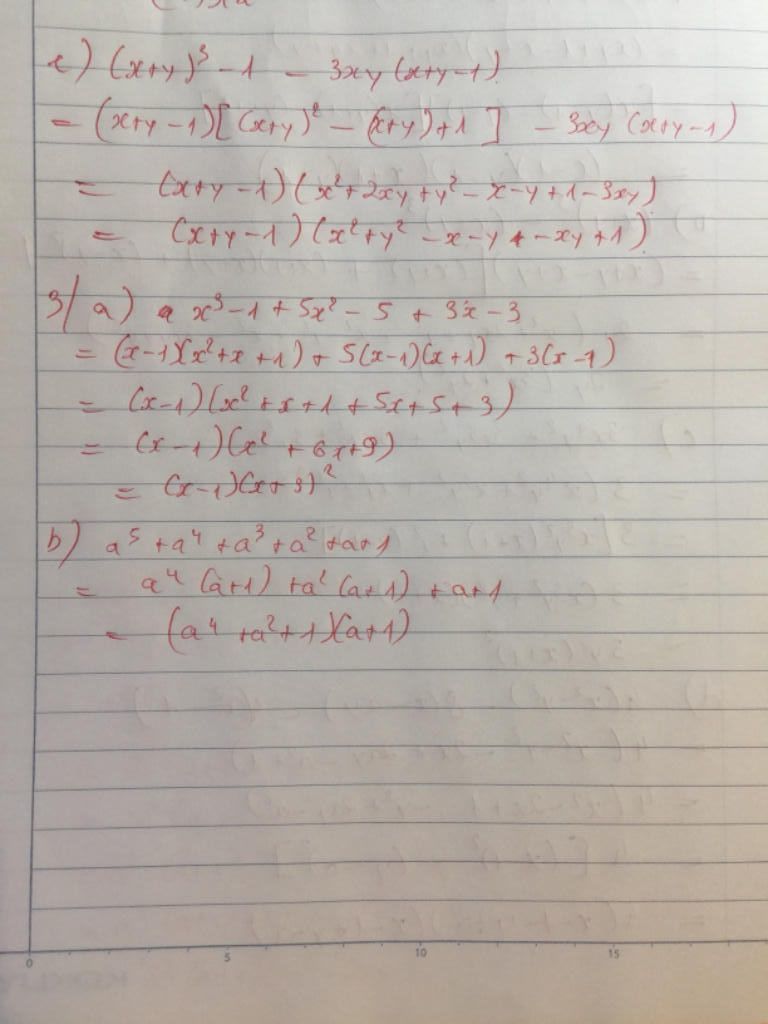 e) (x+y)³ - 1 - 3xy (x+y-1)
= (x+y-1)[(x+y)² - (x+y)+1] - 3xy (x+y-1)
= (x+y-1)(x²+2xy+y²-x-y+1-3xy)
= (x+y-1)(x²+y²-x-y-xy+1)
3/ a) x³-1+5x²-5+3x-3
= (x-1)(x²+x+1)+5(x-1)(x+1)+3(x-1)
= (x-1)(x²+x+1+5x+5+3)
= (x-1)(x²+6x+9)
= (x-1)(x+3)²
b) a⁵+a⁴+a³+a²+a+1
= a⁴(a+1)+a²(a+1)+a+1
= (a⁴+a²+1)(a+1)
0 5 10 15